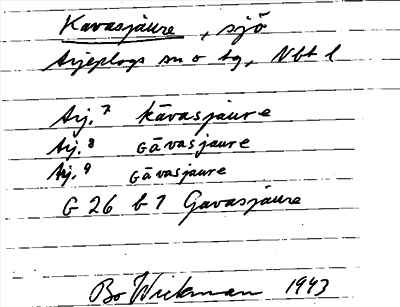 Kavasjaure, sjö
Arjeplogs sn o tg, Nbt l
Arj. 7 kāvasjaure
Arj. 8 Gāvasjaure
Arj. 9 Gāvasjaure
G 26 b 7 Gavasjaure
Bo Wickman 1943